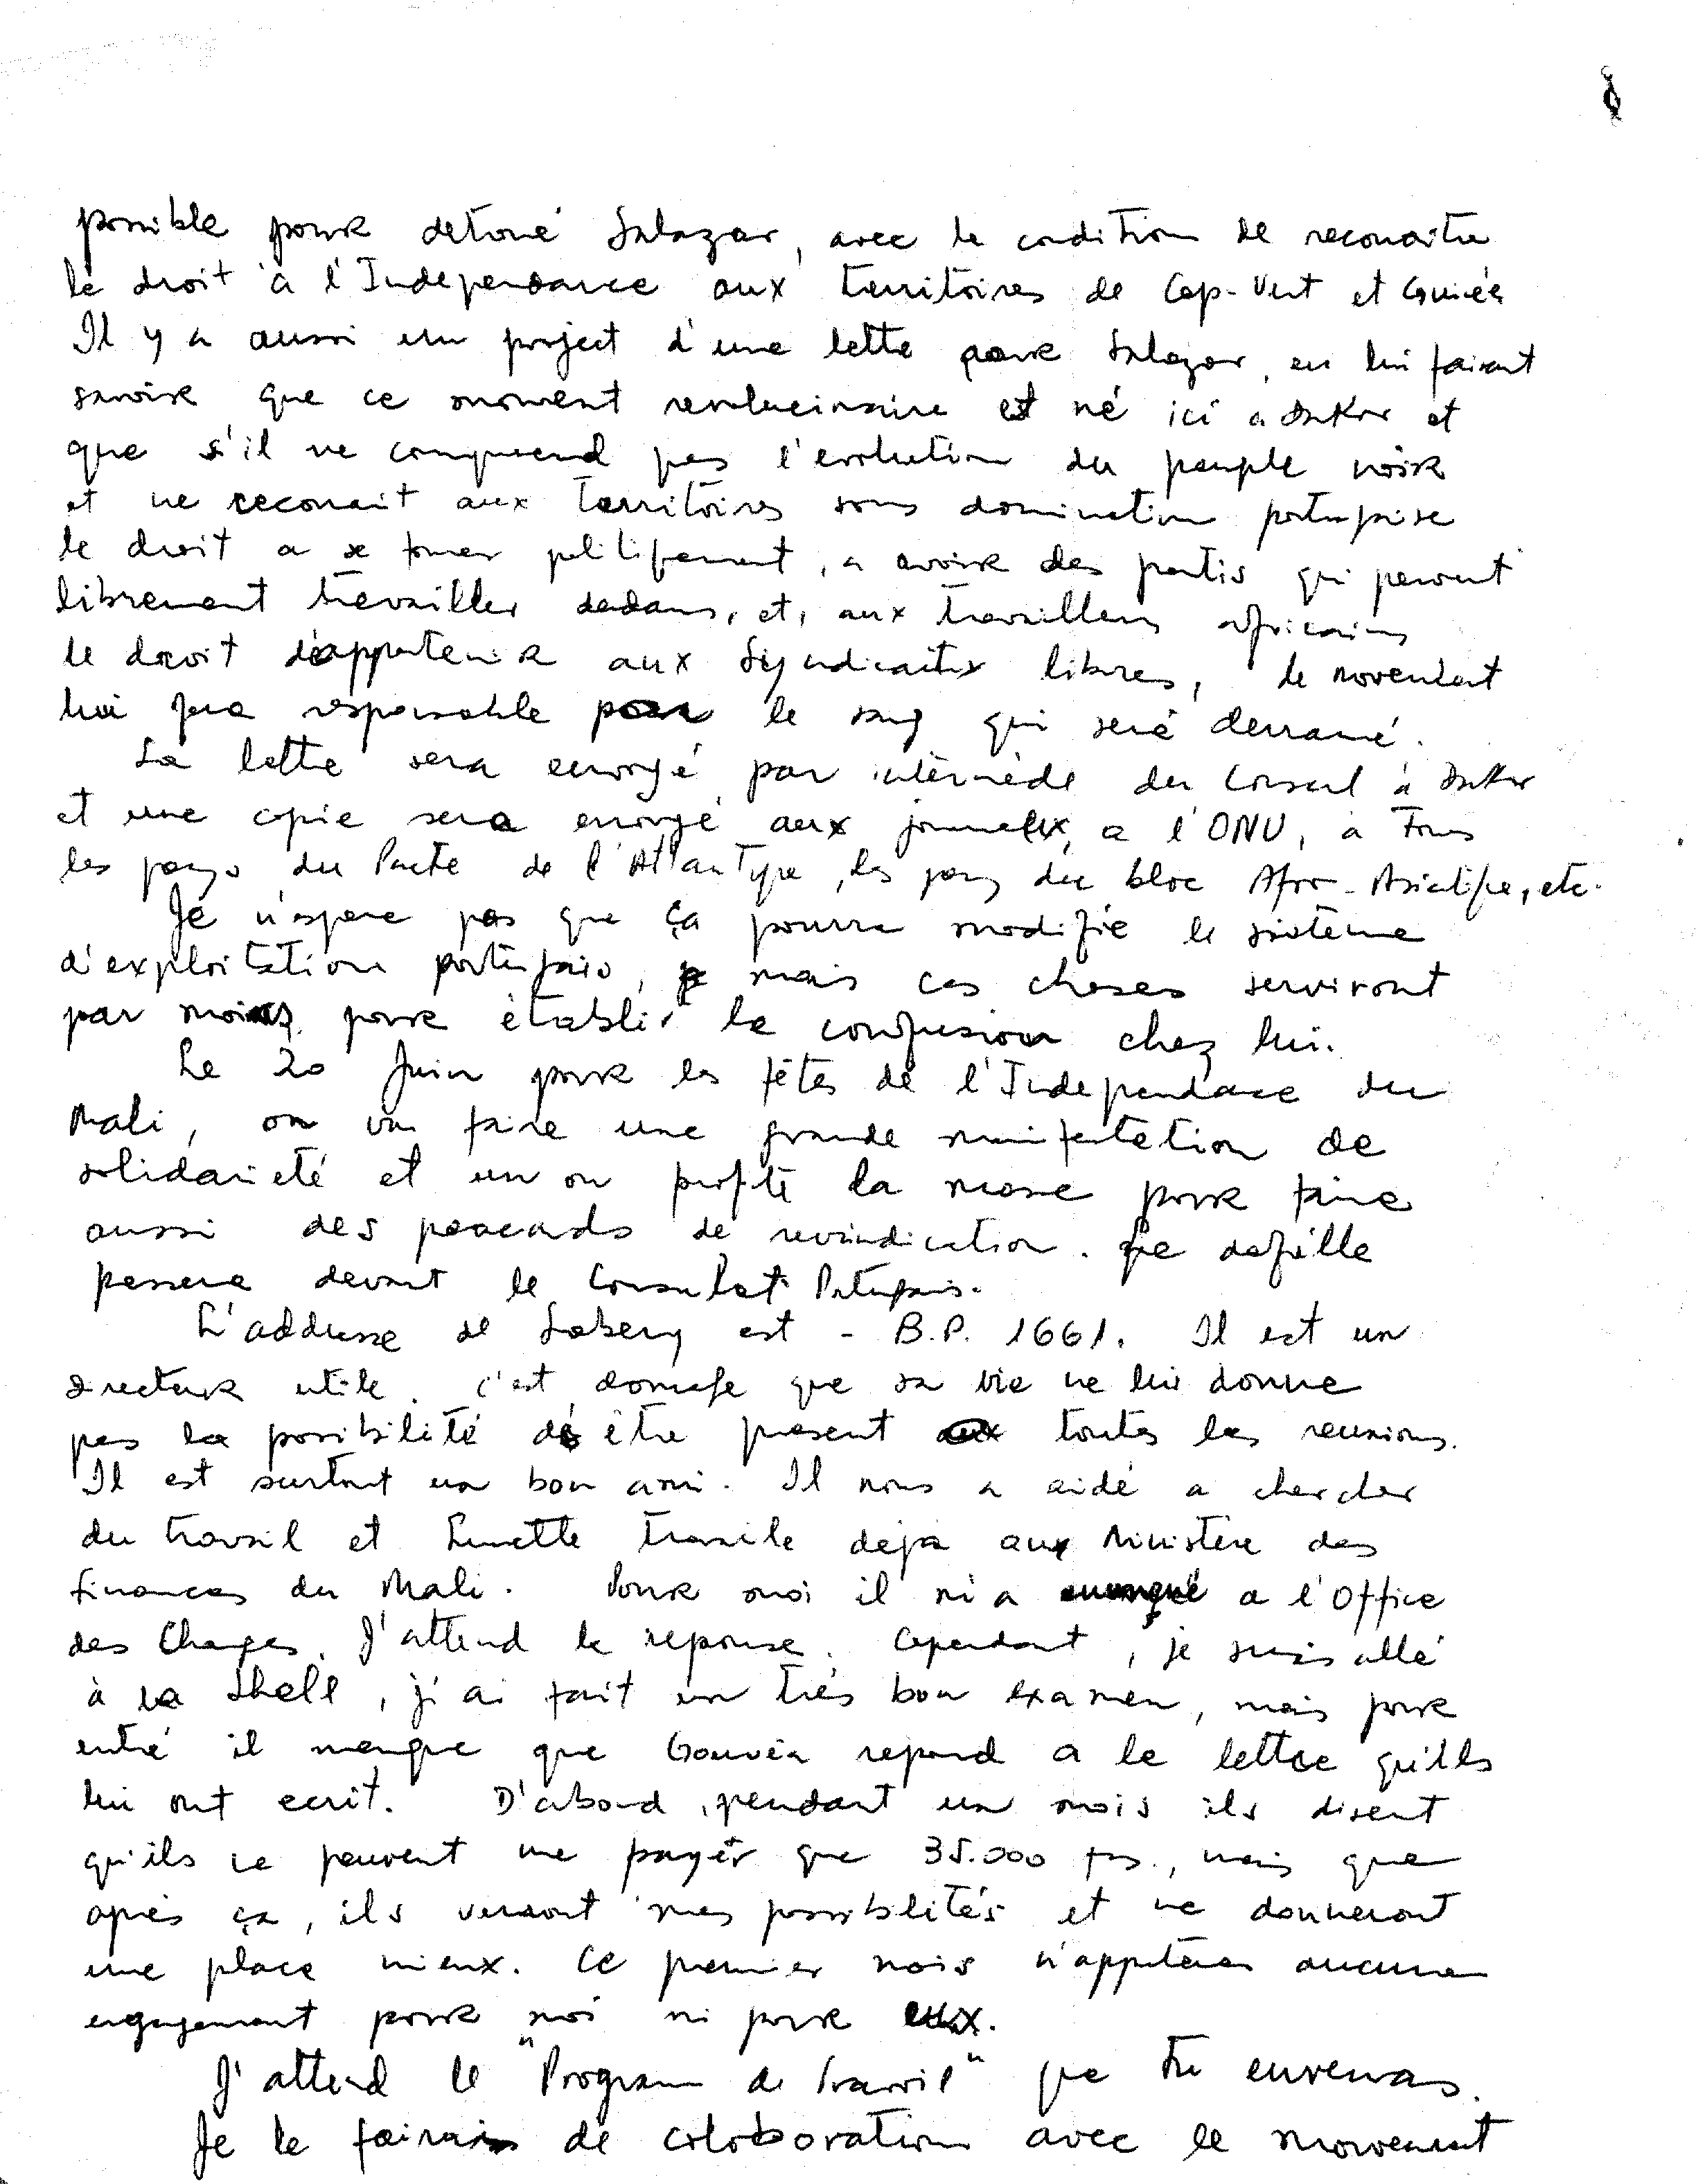 possible pour detoné Salazar, avec la condition de reconaitre
le droit à l'Independance aux territoires de Cap-Vert et Guinée
Il y a aussi un project d'une lettre pour Salazar, en lui faisant
savoir que ce moment revolucionaire est né ici a Dakar et
que s'il ne comprend pas l'evolution du peuple noir
et ne reconait aux territoires sous domination portugaise
le droit a se former politiquement, a avoir des partis qui peuvent
librement travailler dedans, et, aux travailleurs africains
le droit d'appartenir aux Syndicaux libres, le mouvement
lui fera responsable pour le sang qui sera derramé.
La lettre sera envoyé par intèrmède du Consul à Dakar
et une copie sera envoyé aux journaux, a l'ONU, a tous
les pays du Pacte de l'Atlantique, les pays du bloc Afro-Asiatique, etc.
Je n'espere pas que ça pourra modifié le sistème
d'exploitation portugais, mais ces choses serviront
par moins pour établir la confusion chez lui.
Le 20 Juin pour les fêtes de l'Independance du
Mali, on va faire une grande manifestation de
solidarieté et on profite la masse pour faire
aussi des pancards de revindication. Le defille
passera devant le Consulat Portugais.
L'addresse de Sabery est - B.P. 1661. Il est un
directeur utile. C'est domage que sa vie ne lui donne
pas la posibilité de être present aux toutes les reunions.
Il est surtout un bon ami. Il nous a aidé a chercher
du travail et Lunette travaile dejà aux Ministère des
Finances du Mali. Pour moi il m'a envoyé a l'Office
des Changes. J'attend la reponse. Cependant, je suis allé
à la Shell, j'ai fait un très bon examen, mais pour
entré il manque que Gouvêa repond a la lettre qu'ils
lui ont ecrit. D'abord, pendant un mois ils disent
qu'ils ne peuvent me payer que 35.000 frs., mais que
après ça, ils verront mes possiblités et me donneront
une place mieux. Ce premier mois n'apportera aucune
engagement pour moi ni pour eux.
J'attend le "Program de Travail" que tu enverras.
Je le fairais de colaboration avec le mouvement